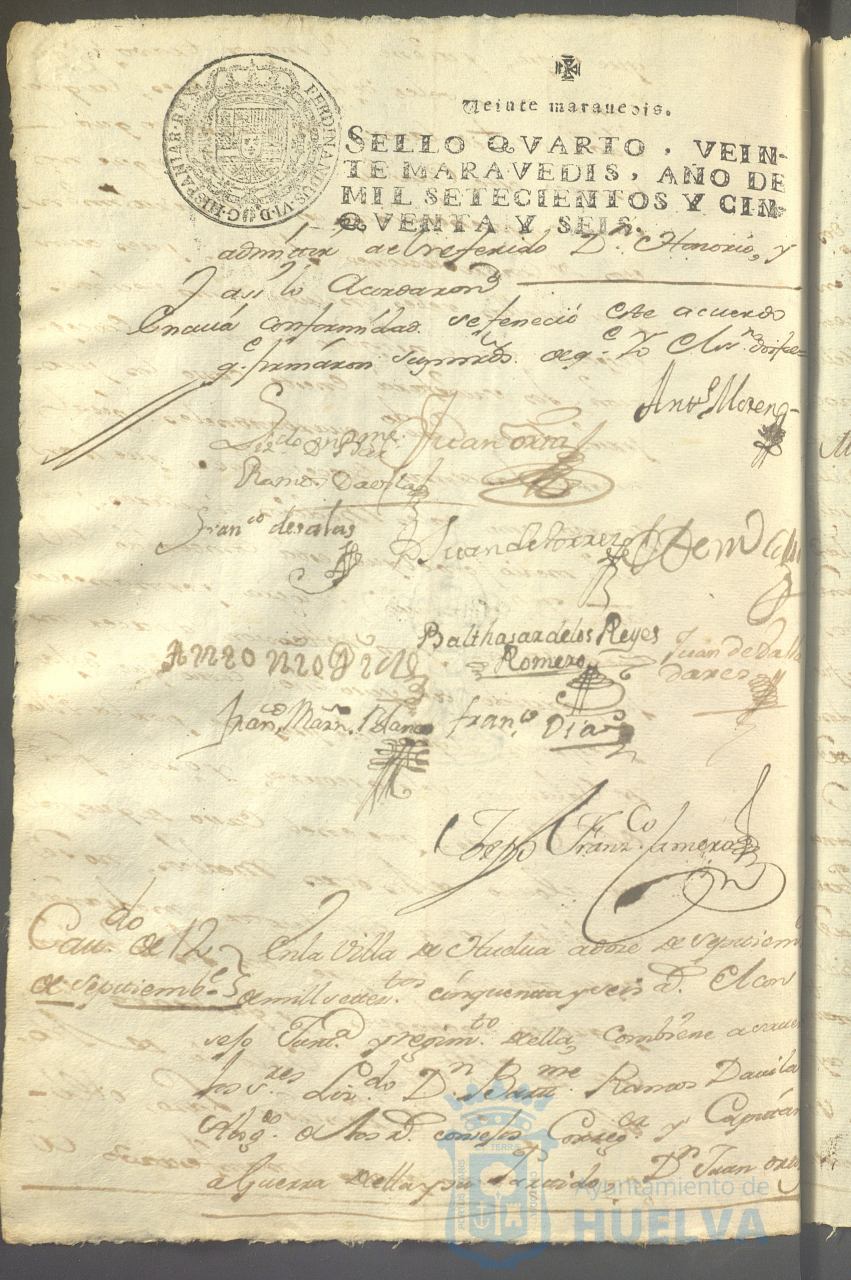 FERDINANDUS·VI·D·G·HISPANIAR·REX
Veinte marauedis.
SELLO QVARTO, VEIN-
TE MARAVEDIS, AÑO DE
MIL SETECIENTOS Y CIN-
QVENTA Y SEIS.
admitir al referido Dn. Honorio, y
asi lo Acordaron
conformidad se feneció este acuerdo
qe. firmaron sus mrds. de qe. Yo el
Antt. Moreno
Lizdo. Dn Bme.
Juan Ortiz
Ramos Dauila
Franco desalas
Juan de
Balthasar de los Reyes
Romero
Juan de Valla
dares
Franco. Marn. Blanco
Franco. Diaz
Franzco.
Caudo. de 12
de Septiembe.
En la Villa de Huelua a doze de Septiem
de mill settectos. cinquenta y seis as. El Con
sejo Justa. y regimto. de ella, combiene a sauer
los sres. Lizdo. Dn. Bartme. Ramos Dauila
Abogdo. de los Rs. consejos Corregor. y Capitán
a Guerra de ella y su Partido, Dn. Juan Ortiz
CONDADO
Ayuntamiento de
HUELVA